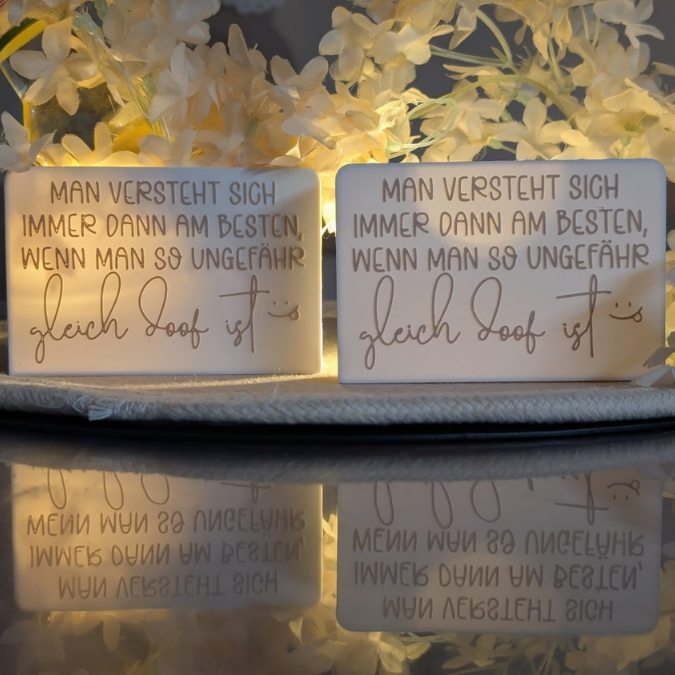 MAN VERSTEHT SICH
IMMER DANN AM BESTEN,
WENN MAN SO UNGEFÄHR
gleich doof ist
MAN VERSTEHT SICH
IMMER DANN AM BESTEN,
WENN MAN SO UNGEFÄHR
gleich doof ist